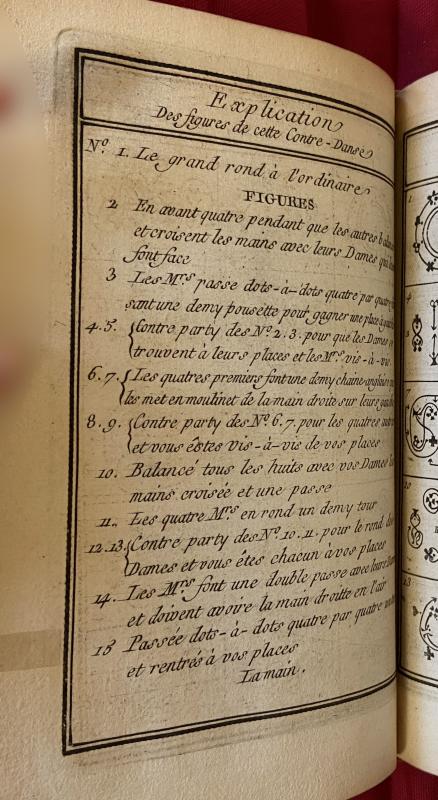 Explication
Des figures de cette Contre-Danse
N.º 1. Le grand rond à l'ordinaire
FIGURES
2 En avant quatre pendant que les autres
et croisent les mains avec leurs Dames qui
font face
3 Les M.rs passe dots-à-dots quatre par quatre
sant une demy pousette pour gagner une place à
4.5. {Contre party des N.º 2.3. pour que les Dames
trouvent à leurs places et les M.rs vis-à-vis
6.7. {Les quatres premiers font une demy chaine anglaise
les met en moulinet de la main droite sur leurs
8.9. {Contre party des N.º 6.7. pour les quatres
et vous éstes vis-à-vis de vos places
10. Balancé tous les huits avec vos Dames
mains croisée et une passe
11. Les quatre M.rs en rond un demy tour
12.13. {Contre party des N.º 10.11. pour le rond
Dames et vous êtes chacun à vos places
14. Les M.rs font une double passe avec leurs
et doivent avoire la main droitte en l'air
15 Passée dots-à-dots quatre par quatre
et rentrés à vos places
La main.
1
4
10
13